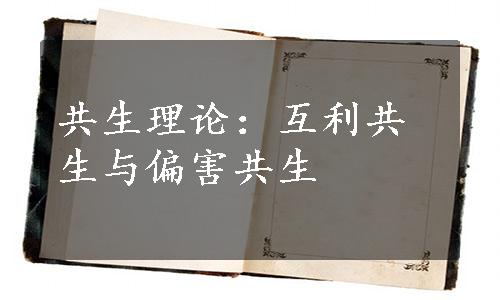 共生理论：互利共
生与偏害共生